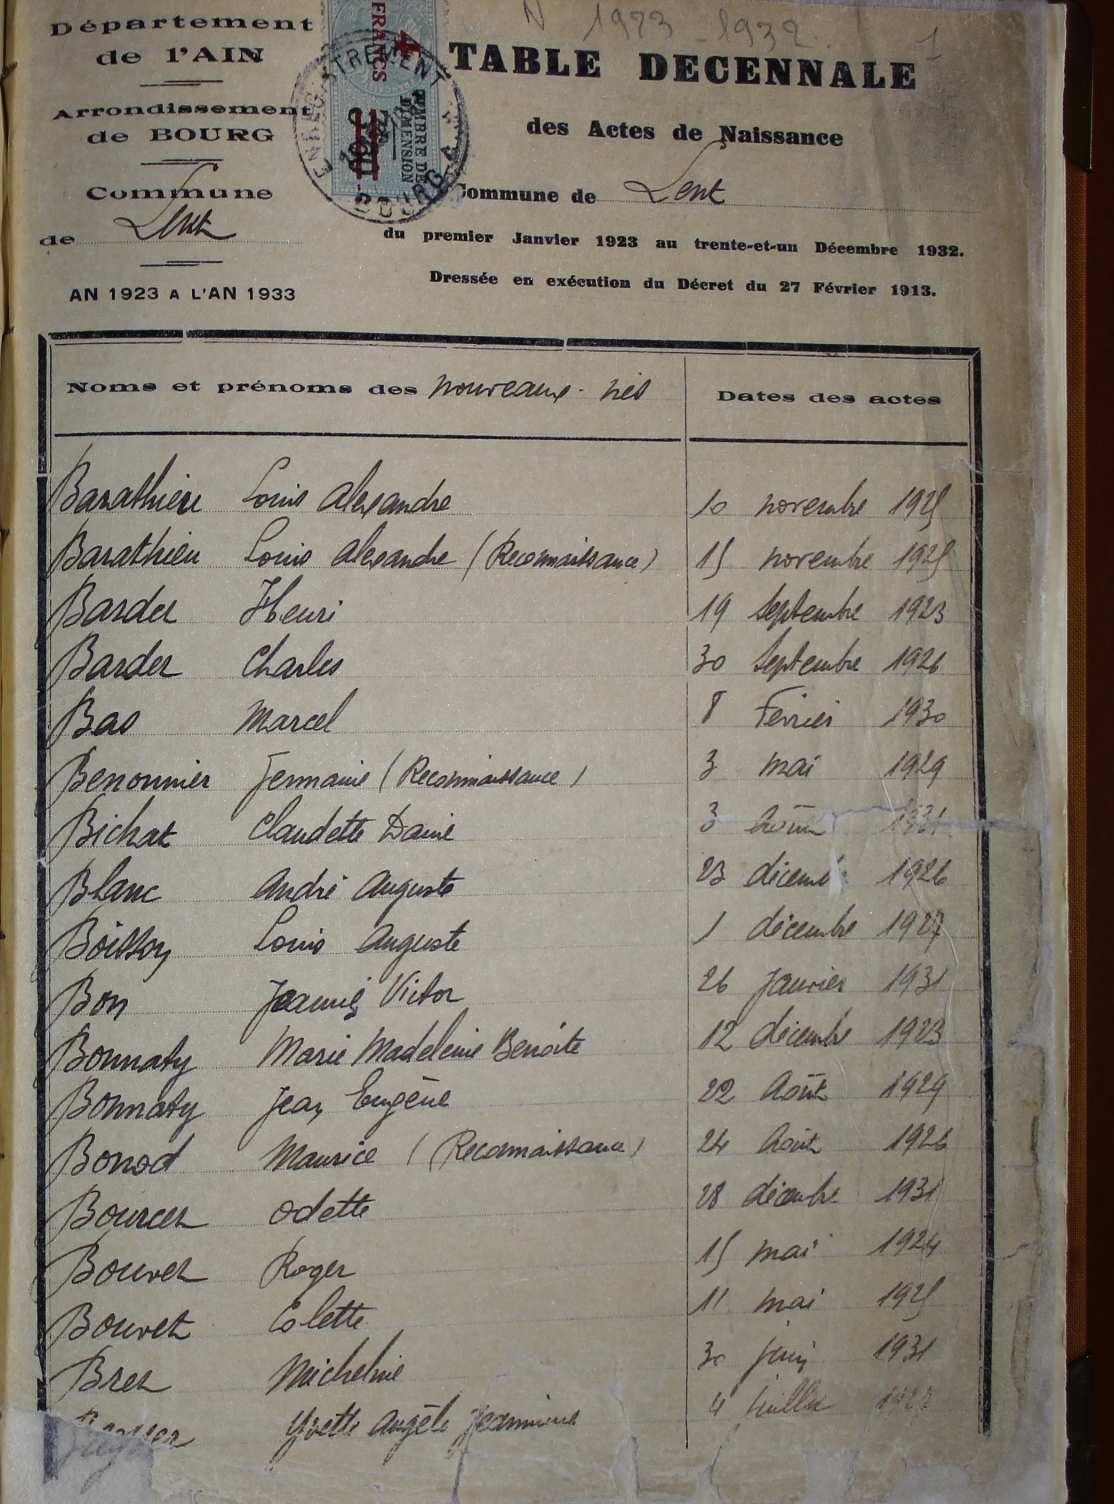 N 1923 - 1932. 1
Département
de l'AIN
Arrondissement
de BOURG
Commune
de Lent
AN 1923 A L'AN 1933
4 FRANCS
TIMBRE DE
DIMENSION
ENREGISTREMENT
BOURG
TABLE DECENNALE
des Actes de Naissance
Commune de Lent
du premier Janvier 1923 au trente-et-un Décembre 1932.
Dressée en exécution du Décret du 27 Février 1913.
Noms et prénoms des nouveaux-nés Dates des actes
Barathieu Louis Alexandre 10 novembre 1925
Barathieu Louis Alexandre (Reconnaissance) 15 novembre 1925
Bardet Henri 19 Septembre 1923
Bardet Charles 30 Septembre 1926
Bas Marcel 8 Février 1930
Benonnier Germaine (Reconnaissance) 3 mai 1929
Bichat Claudette 3 Août 1931
Blanc André Auguste 23 décemb 1926
Boisson Louis Auguste 1 décembre 1927
Bon Victor 26 janvier 1931
Bonnaty Marie Madeleine Benoîte 12 décembre 1923
Bonnaty Jean Eugène 22 Août 1929
Bonod Maurice (Reconnaissance) 24 Août 1926
Bourcet Odette 28 décembre 1931
Bouvet Roger 15 mai 1924
Bouvet Colette 11 mai 1925
Bret Micheline 30 juin 1931
Yvette Angèle Jeannine 4 juillet